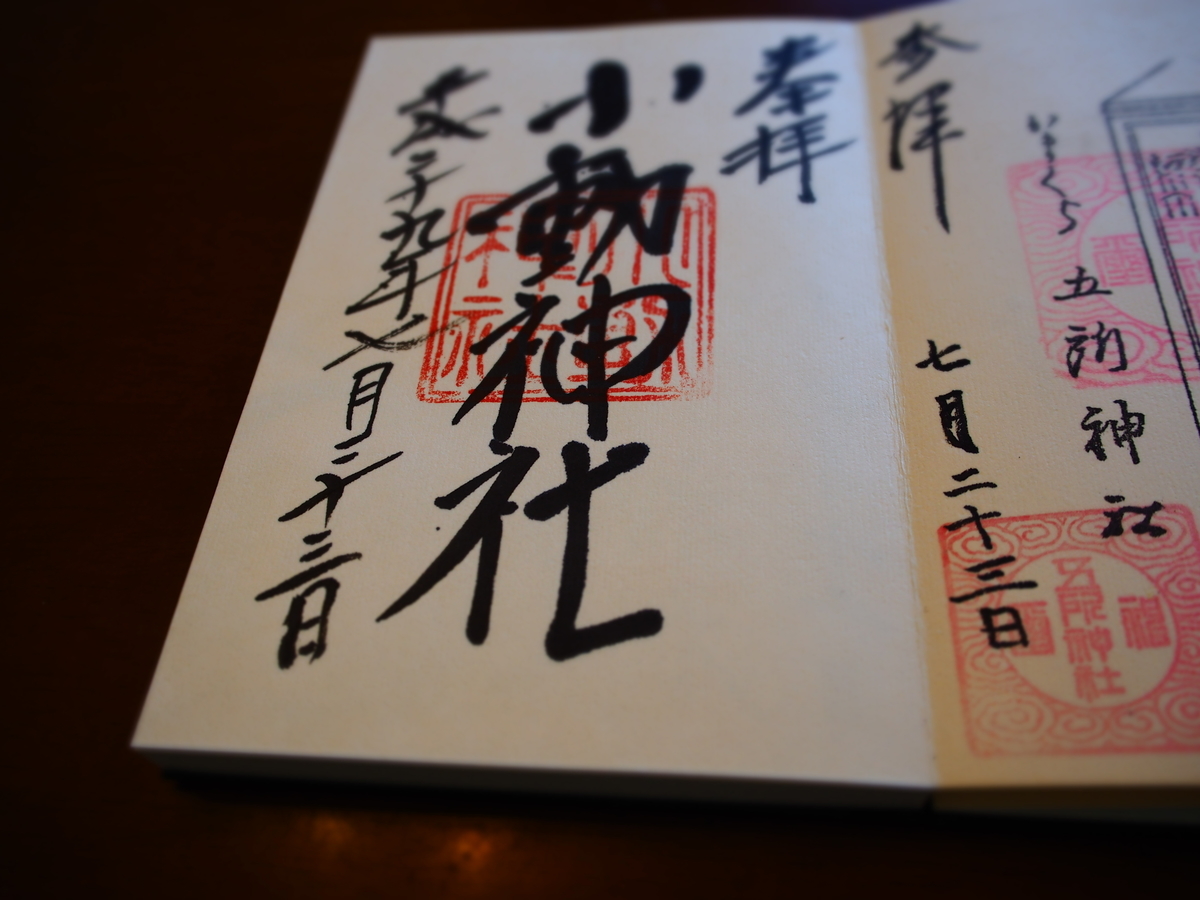 参拝
いそくら 五所神社
七月二十三日
五所神社
奉拝
小動神社
平成二十九年七月二十三日